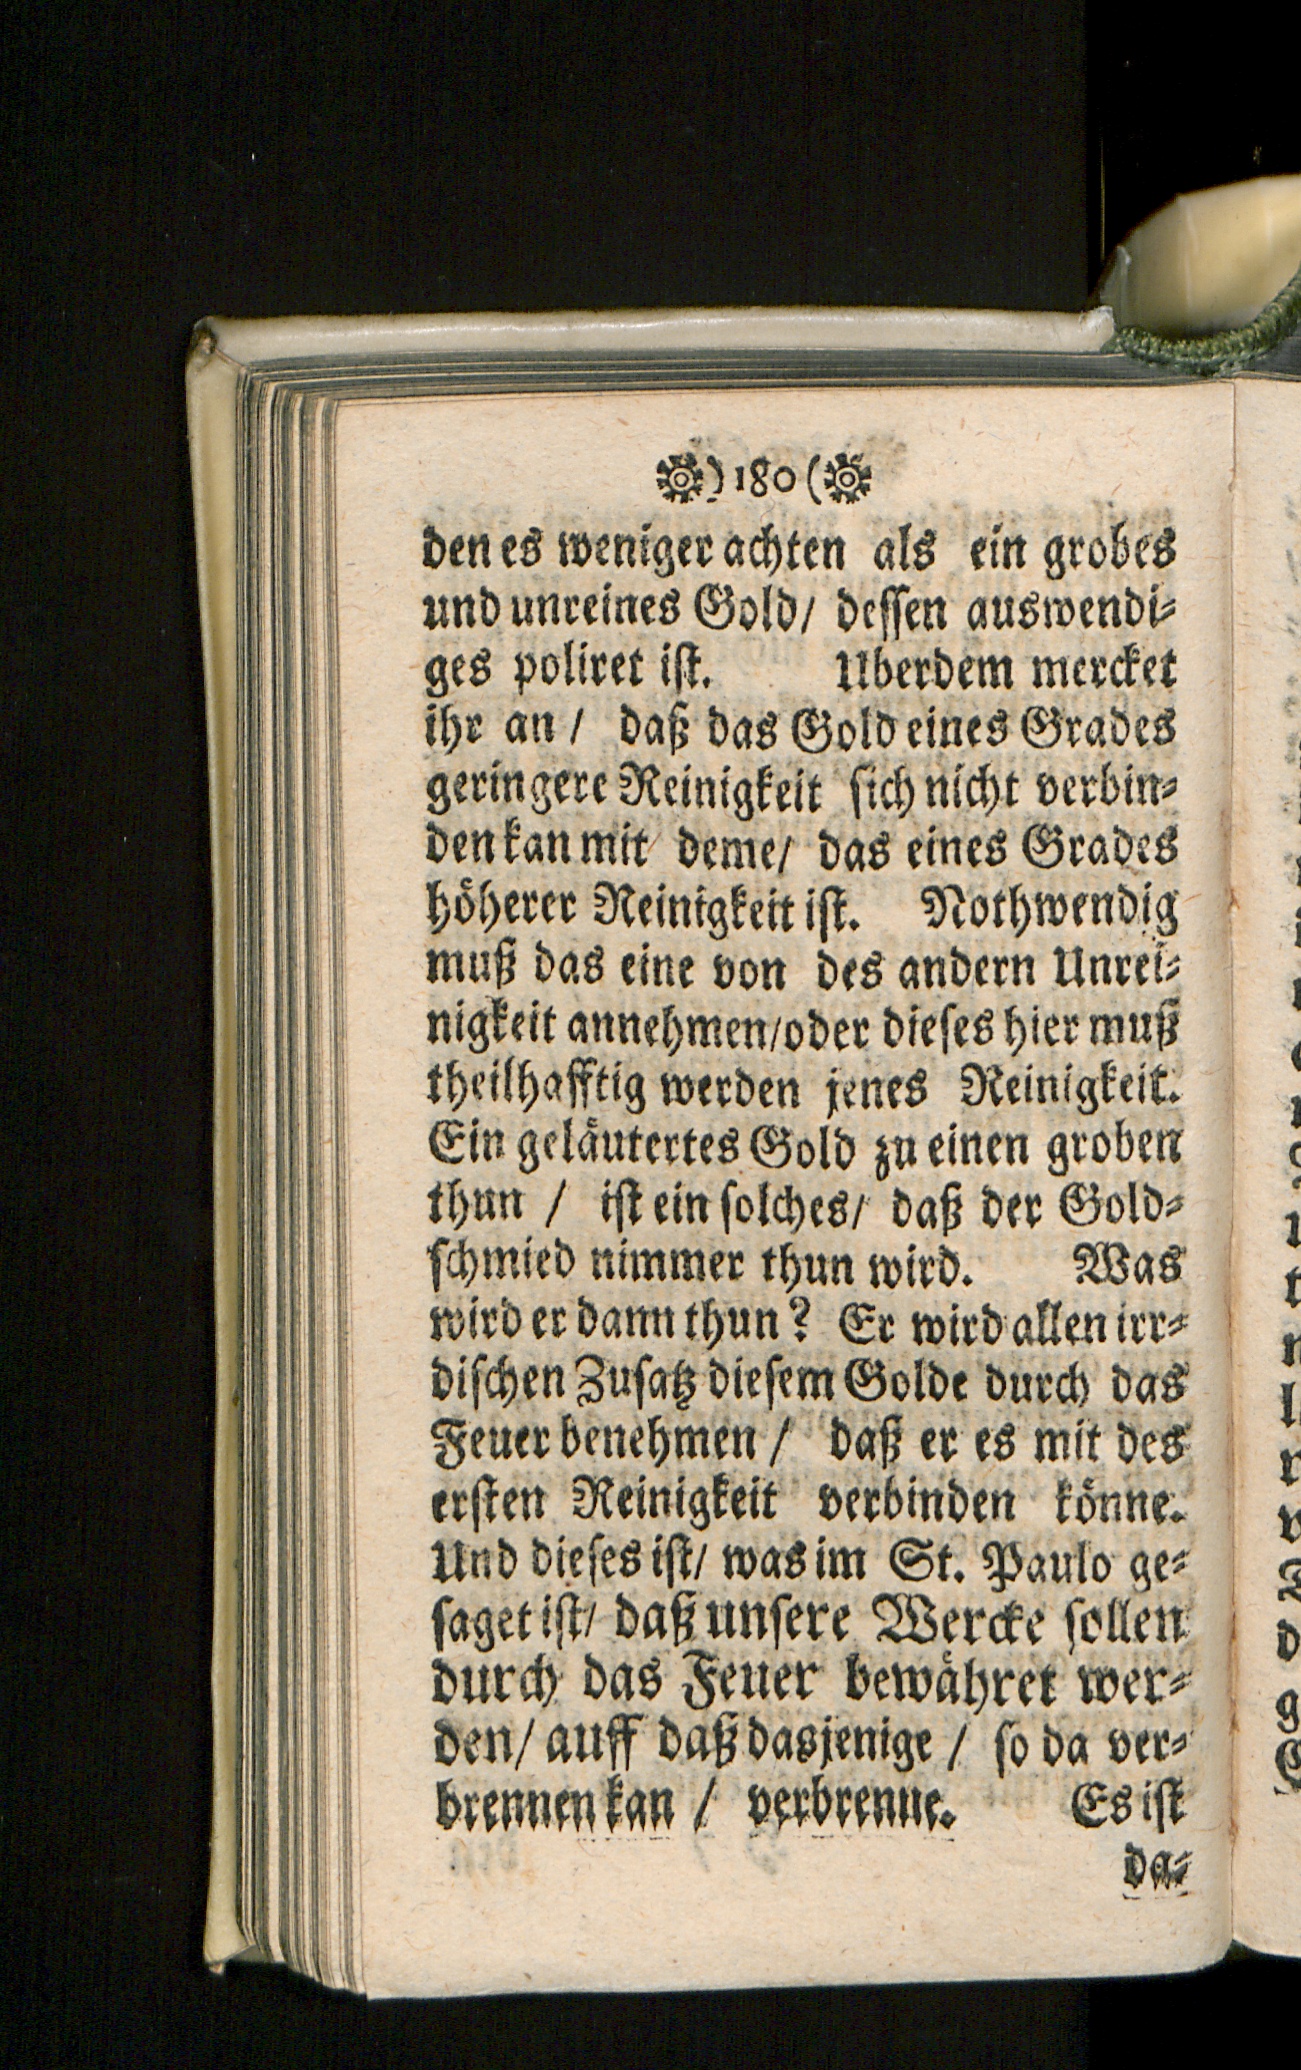 ) 180 (
den es weniger achten als ein grobes
und unreines Gold/ dessen auswendi-
ges poliret ist. Uberdem mercket
ihr an / daß das Gold eines Grades
geringere Reinigkeit sich nicht verbin-
den kan mit deme/ das eines Grades
höherer Reinigkeit ist. Nothwendig
muß das eine von des andern Unrei-
nigkeit annehmen/oder dieses hier muß
theilhafftig werden jenes Reinigkeit.
Ein geläutertes Gold zu einen groben
thun / ist ein solches/ daß der Gold-
schmied nimmer thun wird. Was
wird er dann thun? Er wird allen irr-
dischen Zusatz diesem Golde durch das
Feuer benehmen / daß er es mit des
ersten Reinigkeit verbinden könne.
Und dieses ist/ was im St. Paulo ge-
saget ist/ daß unsere Wercke sollen
durch das Feuer bewähret wer-
den/ auff daß dasjenige / so da ver-
brennen kan / verbrenne. Es ist
da-